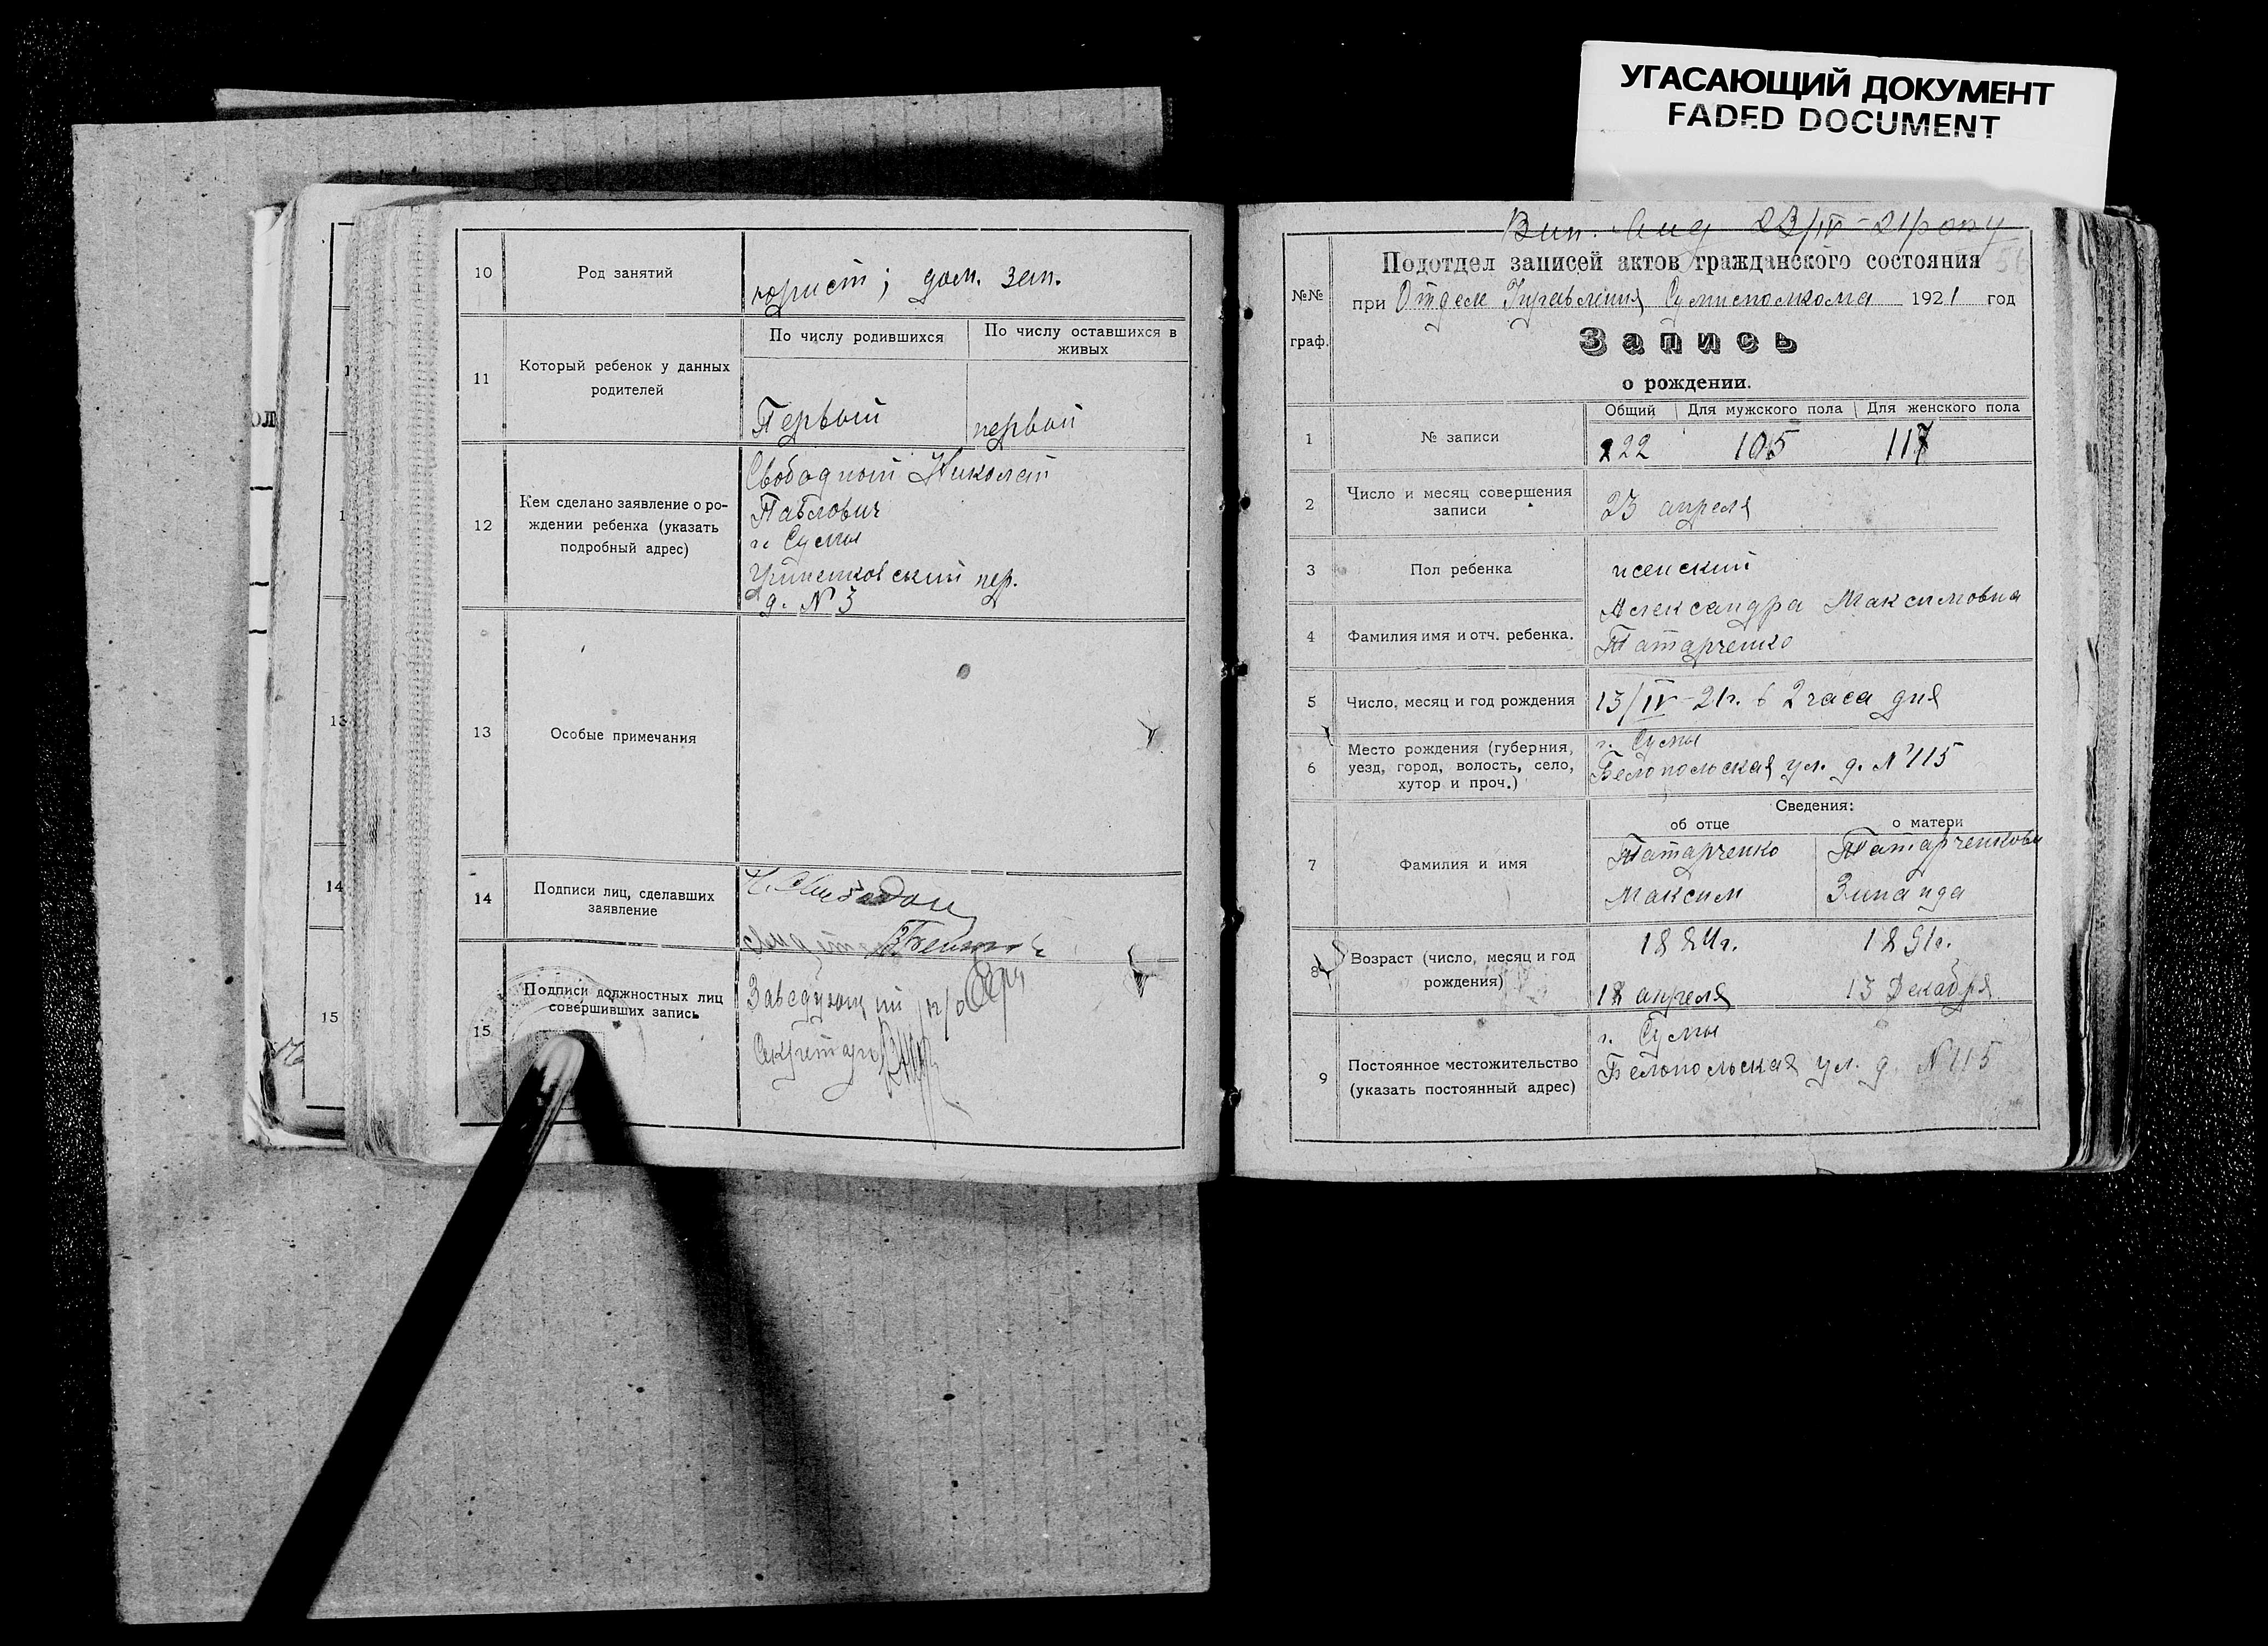 УГАСАЮЩИЙ ДОКУМЕНТ
FADED DOCUMENT
10
Род занятий
юрист; дом. зан.
11
Который ребенок у данных
родителей
По числу родившихся
По числу оставшихся в
живых
Первый
первый
12
Кем сделано заявление о ро-
ждении ребенка (указать
подробный адрес)
Свободной Николай
Павлович
г. Сумы
пер.
д. № 3
13
Особые примечания
14
Подписи лиц, сделавших
заявление
15
Подписи должностных лиц
совершивших запись
Заведующий
Секретарь
23/IV-21 року
Подотдел записей актов гражданского состояния
при Отделе Управления Сумисполкома 1921 год
№№
граф.
Запись
о рождении.
1
№ записи
Общий
Для мужского пола
Для женского пола
222
105
117
2
Число и месяц совершения
записи
23 апреля
3
Пол ребенка
женский
4
Фамилия имя и отч. ребенка.
Александра Максимовна
Татарченко
5
Число, месяц и год рождения
13/IV-21г. в 2 часа дня
6
Место рождения (губерния,
уезд, город, волость, село,
хутор и проч.)
г. Сумы
Белопольская ул. д. № 115
Сведения:
об отце
о матери
7
Фамилия и имя
Татарченко
Максим
Татарченкова
Зинаида
8
Возраст (число, месяц и год
рождения)
1884г.
апреля
1891г.
13 Декабря
9
Постоянное местожительство
(указать постоянный адрес)
г. Сумы
Белопольская ул. д. № 115
13
14
15